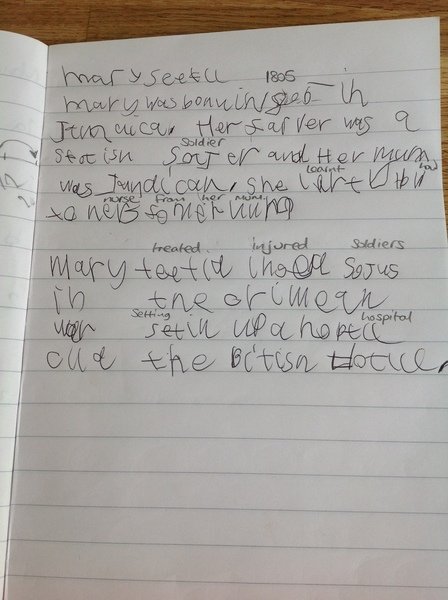 mary seetu
1805
mary was bonu in in
Jamaica. Her farver was a
soldier
Stotish Sojer and Her mum
learnt how
was Jamdican. she lirt
nurse from her mum.
to ners fo ner mum
treated injured soldiers
Mary teetid inoed Sojus
in the crimean
setting hospital
wor setin up a hortu
cud the Bitish Hotul.